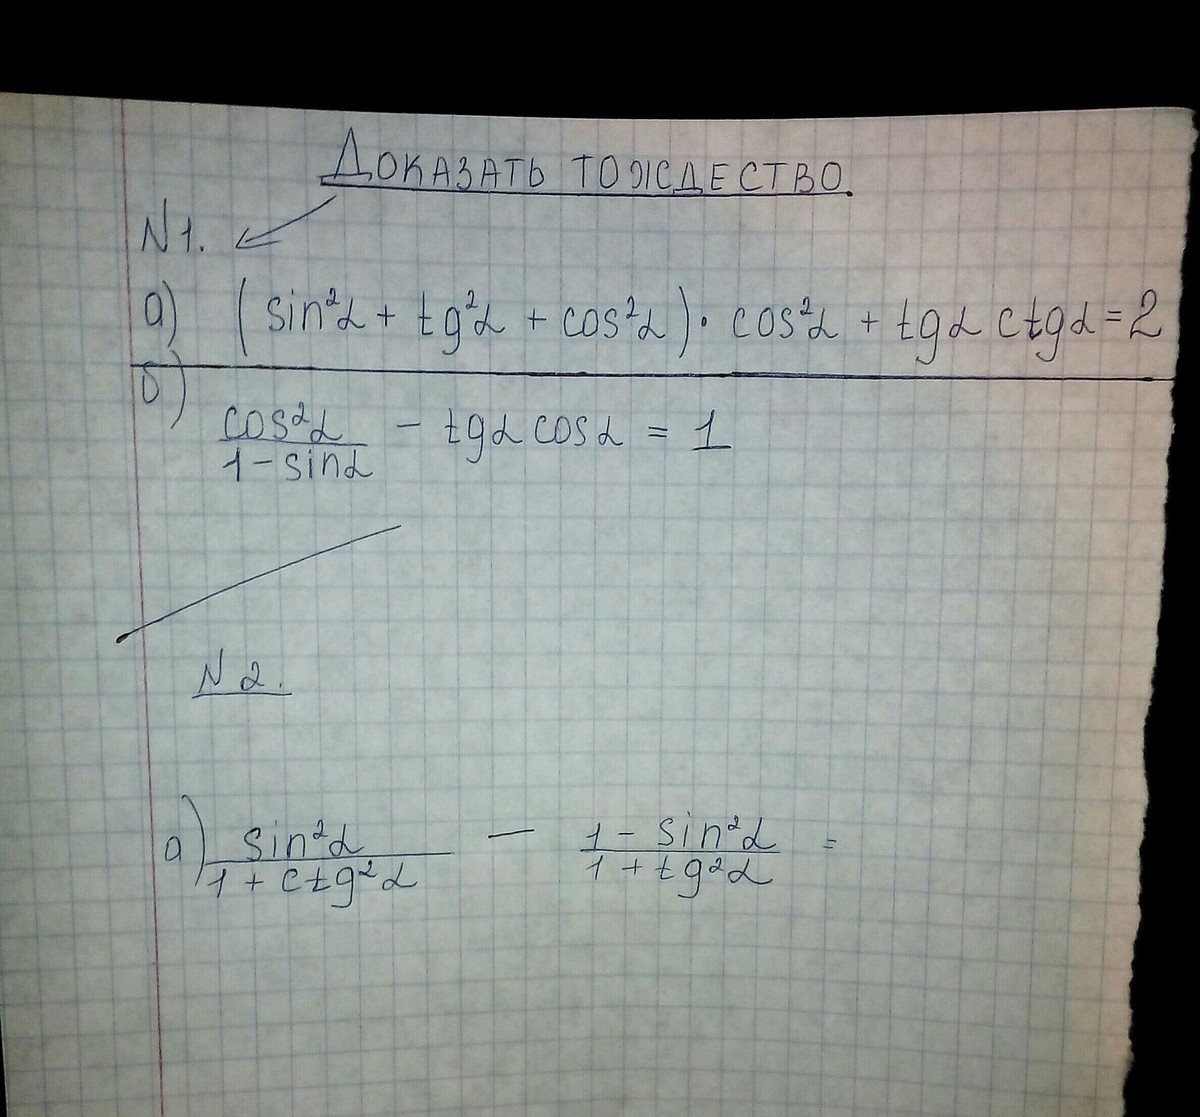 ДОКАЗАТЬ ТОЖДЕСТВО.
N1.
а) (sin²α + tg²α + cos²α) · cos²α + tgα ctgα = 2
б) cos²α / 1 - sinα - tgα cosα = 1
N 2.
а) sin²α / 1 + ctg²α — 1 - sin²α / 1 + tg²α =